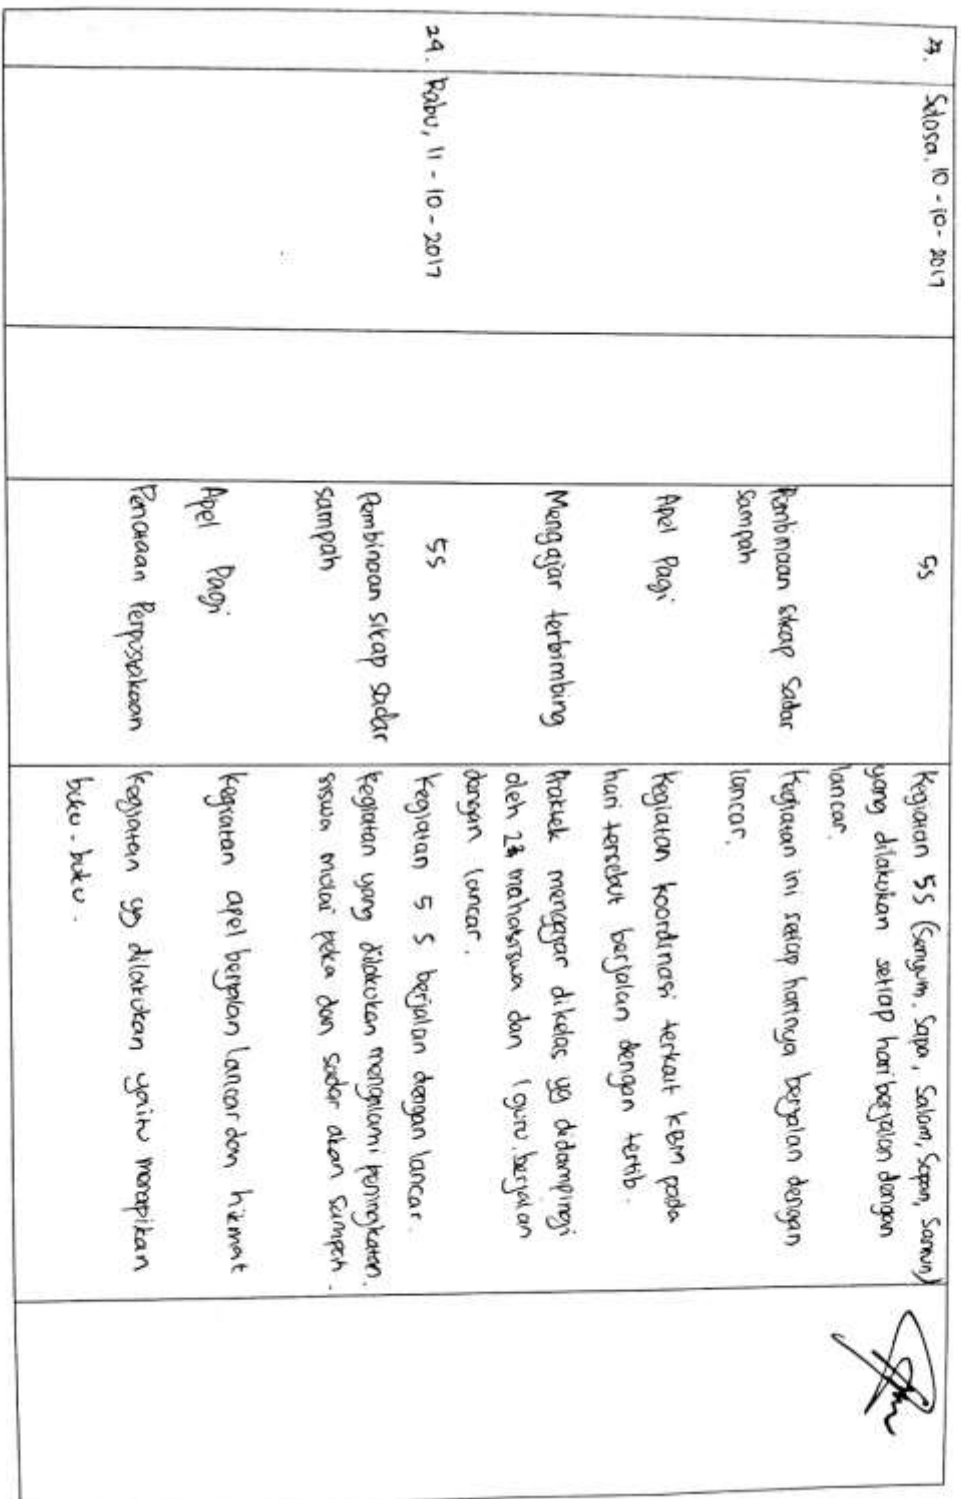 23. Selasa, 10 - 10 - 2017
5S
Kegiatan 5S (Senyum, Sapa, Salam, Sopan, Santun)
yang dilakukan setiap hari berjalan dengan
lancar.
Pembinaan sikap sadar
sampah
Kegiatan ini setiap harinya berjalan dengan
lancar.
Apel Pagi
Kegiatan koordinasi terkait KBM pada
hari tersebut berjalan dengan tertib.
Mengajar terbimbing
Praktek mengajar dikelas yg didampingi
oleh 2 mahasiswa dan 1 guru berjalan
dengan lancar.
24. Rabu, 11 - 10 - 2017
5S
Kegiatan 5 S berjalan dengan lancar.
Pembinaan sikap sadar
sampah
Kegiatan yang dilakukan mengalami peningkatan.
siswa mulai peka dan sadar akan sampah.
Apel Pagi
Kegiatan apel berjalan lancar dan hikmat
Penataan Perpustakaan
Kegiatan yg dilakukan yaitu merapikan
buku - buku.